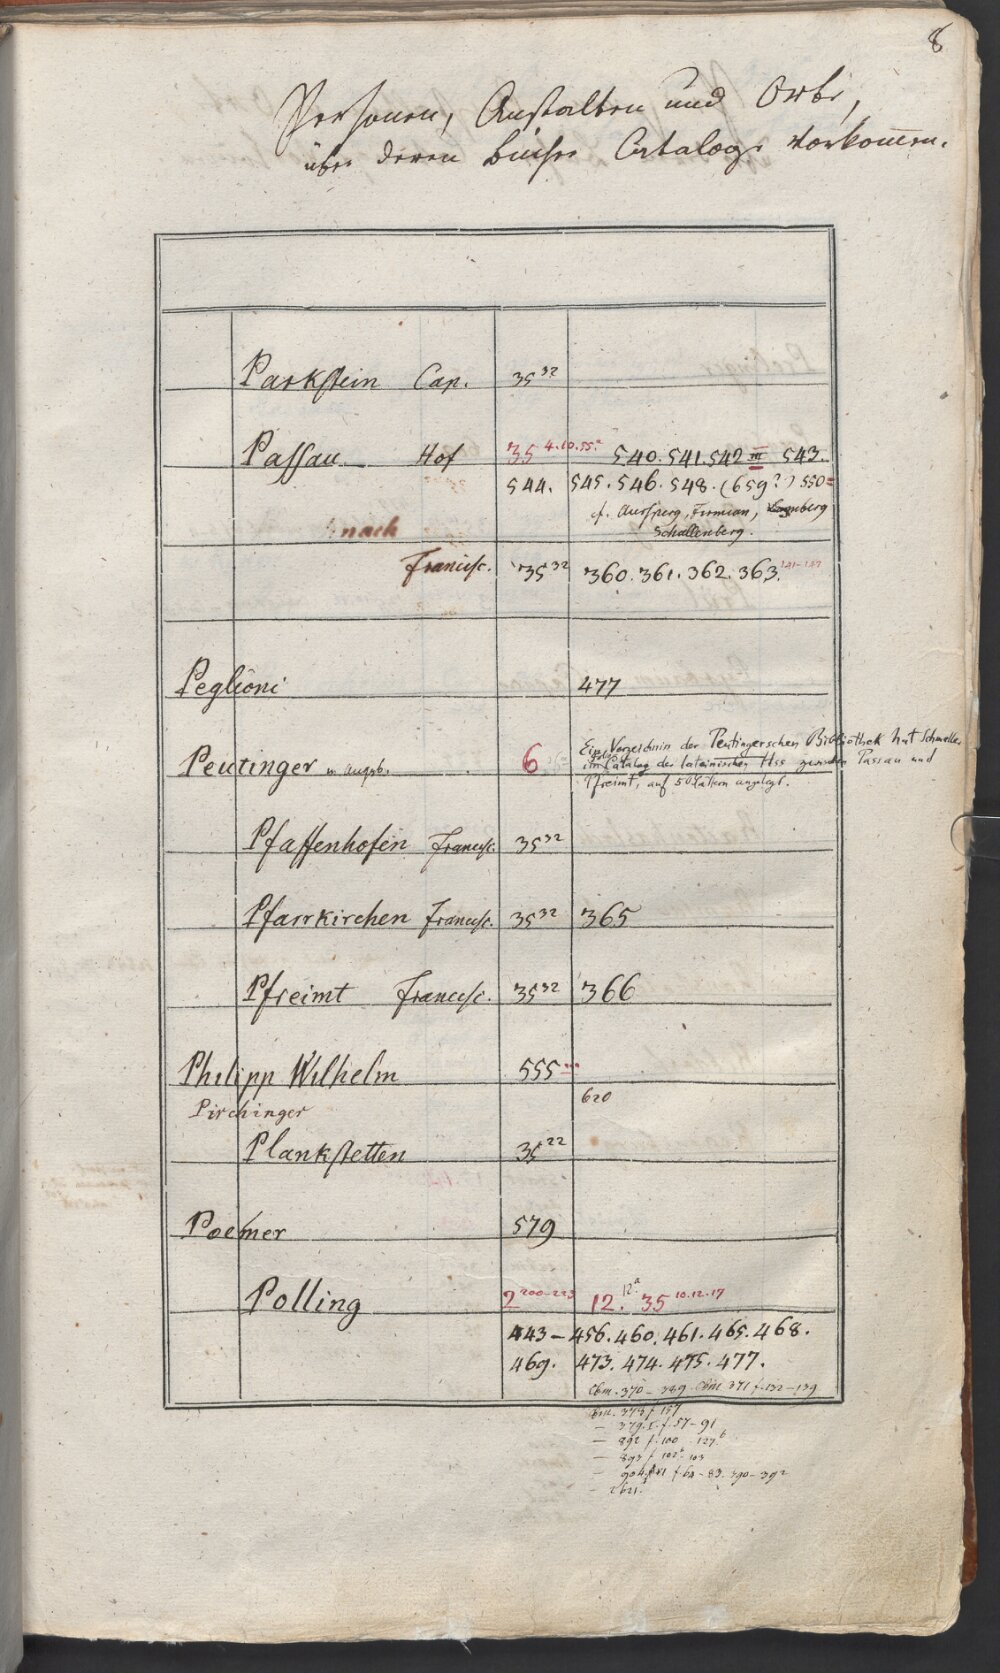 8
Personen, Anstalten und Orte,
über deren Bücher Cataloge vorkom̅en.
Parkstein Cap. 35 32
Passau Hof 35 4.10.55.a 540. 541. 542 III 543.
544. 545. 546. 548. (659?) 550
cf. Aursperg, Firmian, Lamberg
Schallenberg.
nach
Francisc. 35 32 360. 361. 362. 363. 141-147
Peglioni 477
Peutinger in Augsb. 6 Ein Verzeichnis der Peutingerschen Bibliothek hat Schmeller
im Catalog der lateinischen Hss zwischen Passau und
Pfreimt, auf 5 Blättern angelegt.
Pfaffenhofen Francisc. 35 32
Pfarrkirchen Francisc. 35 32 365
Pfreimt Francisc. 35 32 366
Philipp Wilhelm 555
Pirchinger 620
Plankstetten 35 22
Poemer 579
Polling 2 200-223 12. 12.a 35 10.12.17
443 – 456. 460. 461. 465. 468.
469. 473. 474. 475. 477.
Cbm. 370 – 389 Cbm 371 f. 132 – 139
Cbm. 378 f 157
— 379. I. f. 57 – 91
— 892 f. 100 127.b
— 893 f 102b 103
— 904 f 62 – 83. 390 – 392
— 2621.